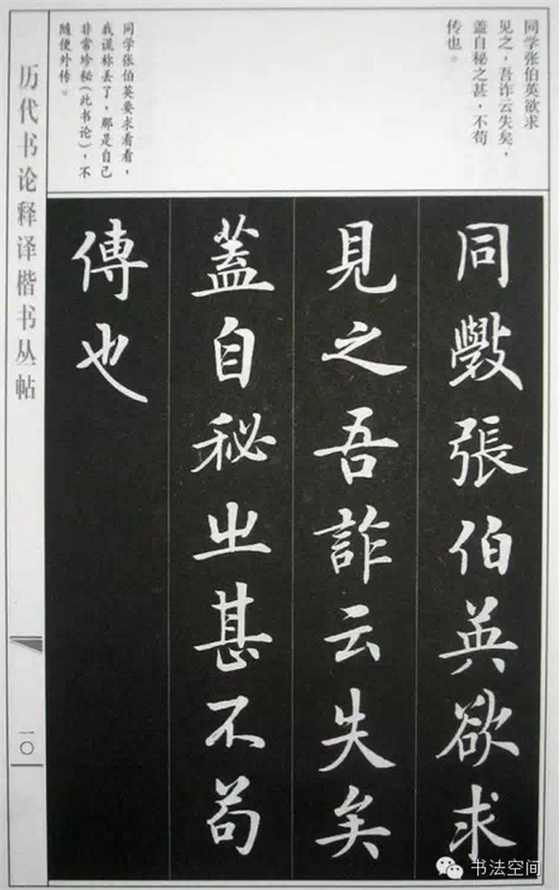 同学张伯英欲求
见之，吾诈云失矣，
盖自秘之甚，不苟
传也。
同学张伯英要求看看，
我谎称丢了，那是自己
非常珍秘（此书论），不
随便外传。
同斆張伯英欲求
見之吾詐云失矣
蓋自秘之甚不苟
傳也
历代书论释译楷书丛帖
一〇
书法空间